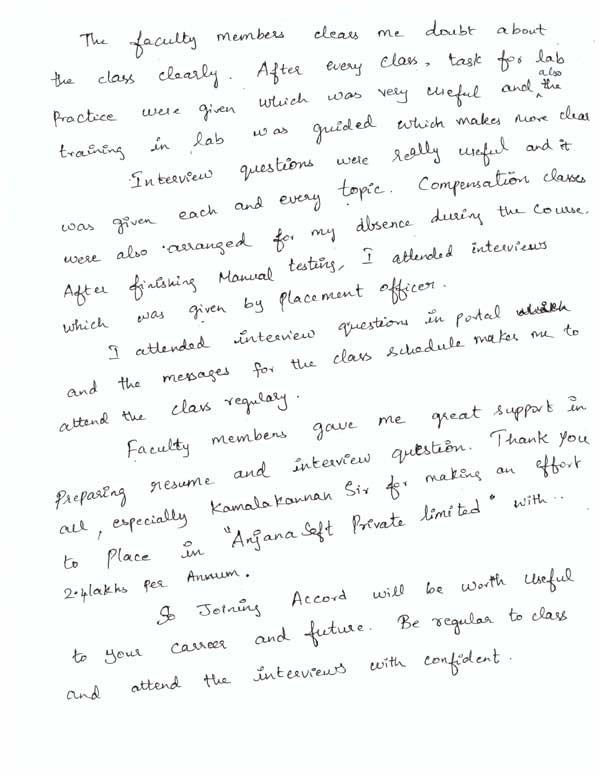 The faculty members clears me doubt about
the class clearly. After every class, task for lab
Practice were given which was very useful and also the
training in lab was guided which makes more clear
Interview questions were really useful and it
was given each and every topic. Compensation classes
were also arranged for my absence during the course.
After finishing Manual testing, I attended interviews
which was given by placement officer.
I attended interview questions in portal which
and the messages for the class schedule makes me to
attend the class regulary.
Faculty members gave me great support in
Preparing resume and interview question. Thank you
all, especially Kamalakannan Sir for making an effort
to Place in "Anjana Soft Private limited" with..
2.4lakhs per Annum.
So Joining Accord will be worth useful
to your carreer and future. Be regular to class
and attend the interviews with confident.